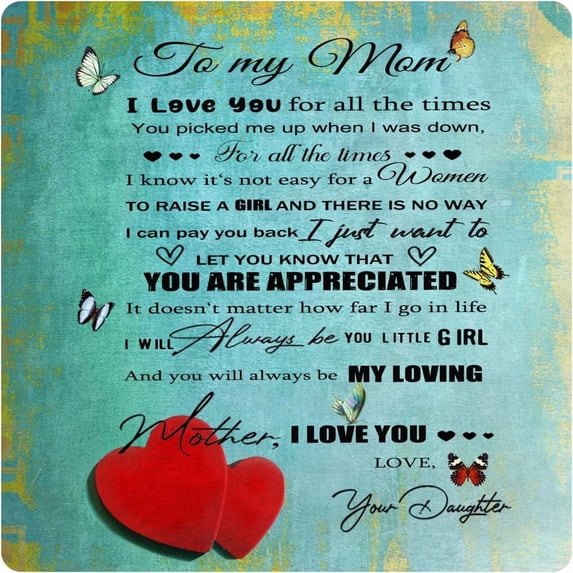 To my Mom
I Love You for all the times
You picked me up when I was down,
For all the times
I know it's not easy for a Women
TO RAISE A GIRL AND THERE IS NO WAY
I can pay you back I just want to
LET YOU KNOW THAT
YOU ARE APPRECIATED
It doesn't matter how far I go in life
I WILL Always be YOU LITTLE GIRL
And you will always be MY LOVING
Mother, I LOVE YOU
LOVE,
Your Daughter